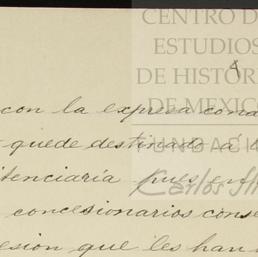 CENTRO DE
ESTUDIOS
DE HISTOR
DE MEXICO
FUNDACIÓ
Carlos
con la expresa cond
quede destinado á
tenciaría pues en
concesionarios conse
esion que les han